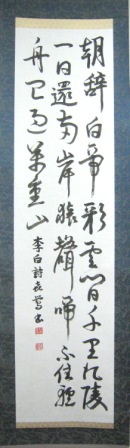 朝辞白帝彩雲間千里江陵
一日還両岸猿聲啼不住軽
舟已過萬重山
李白詩